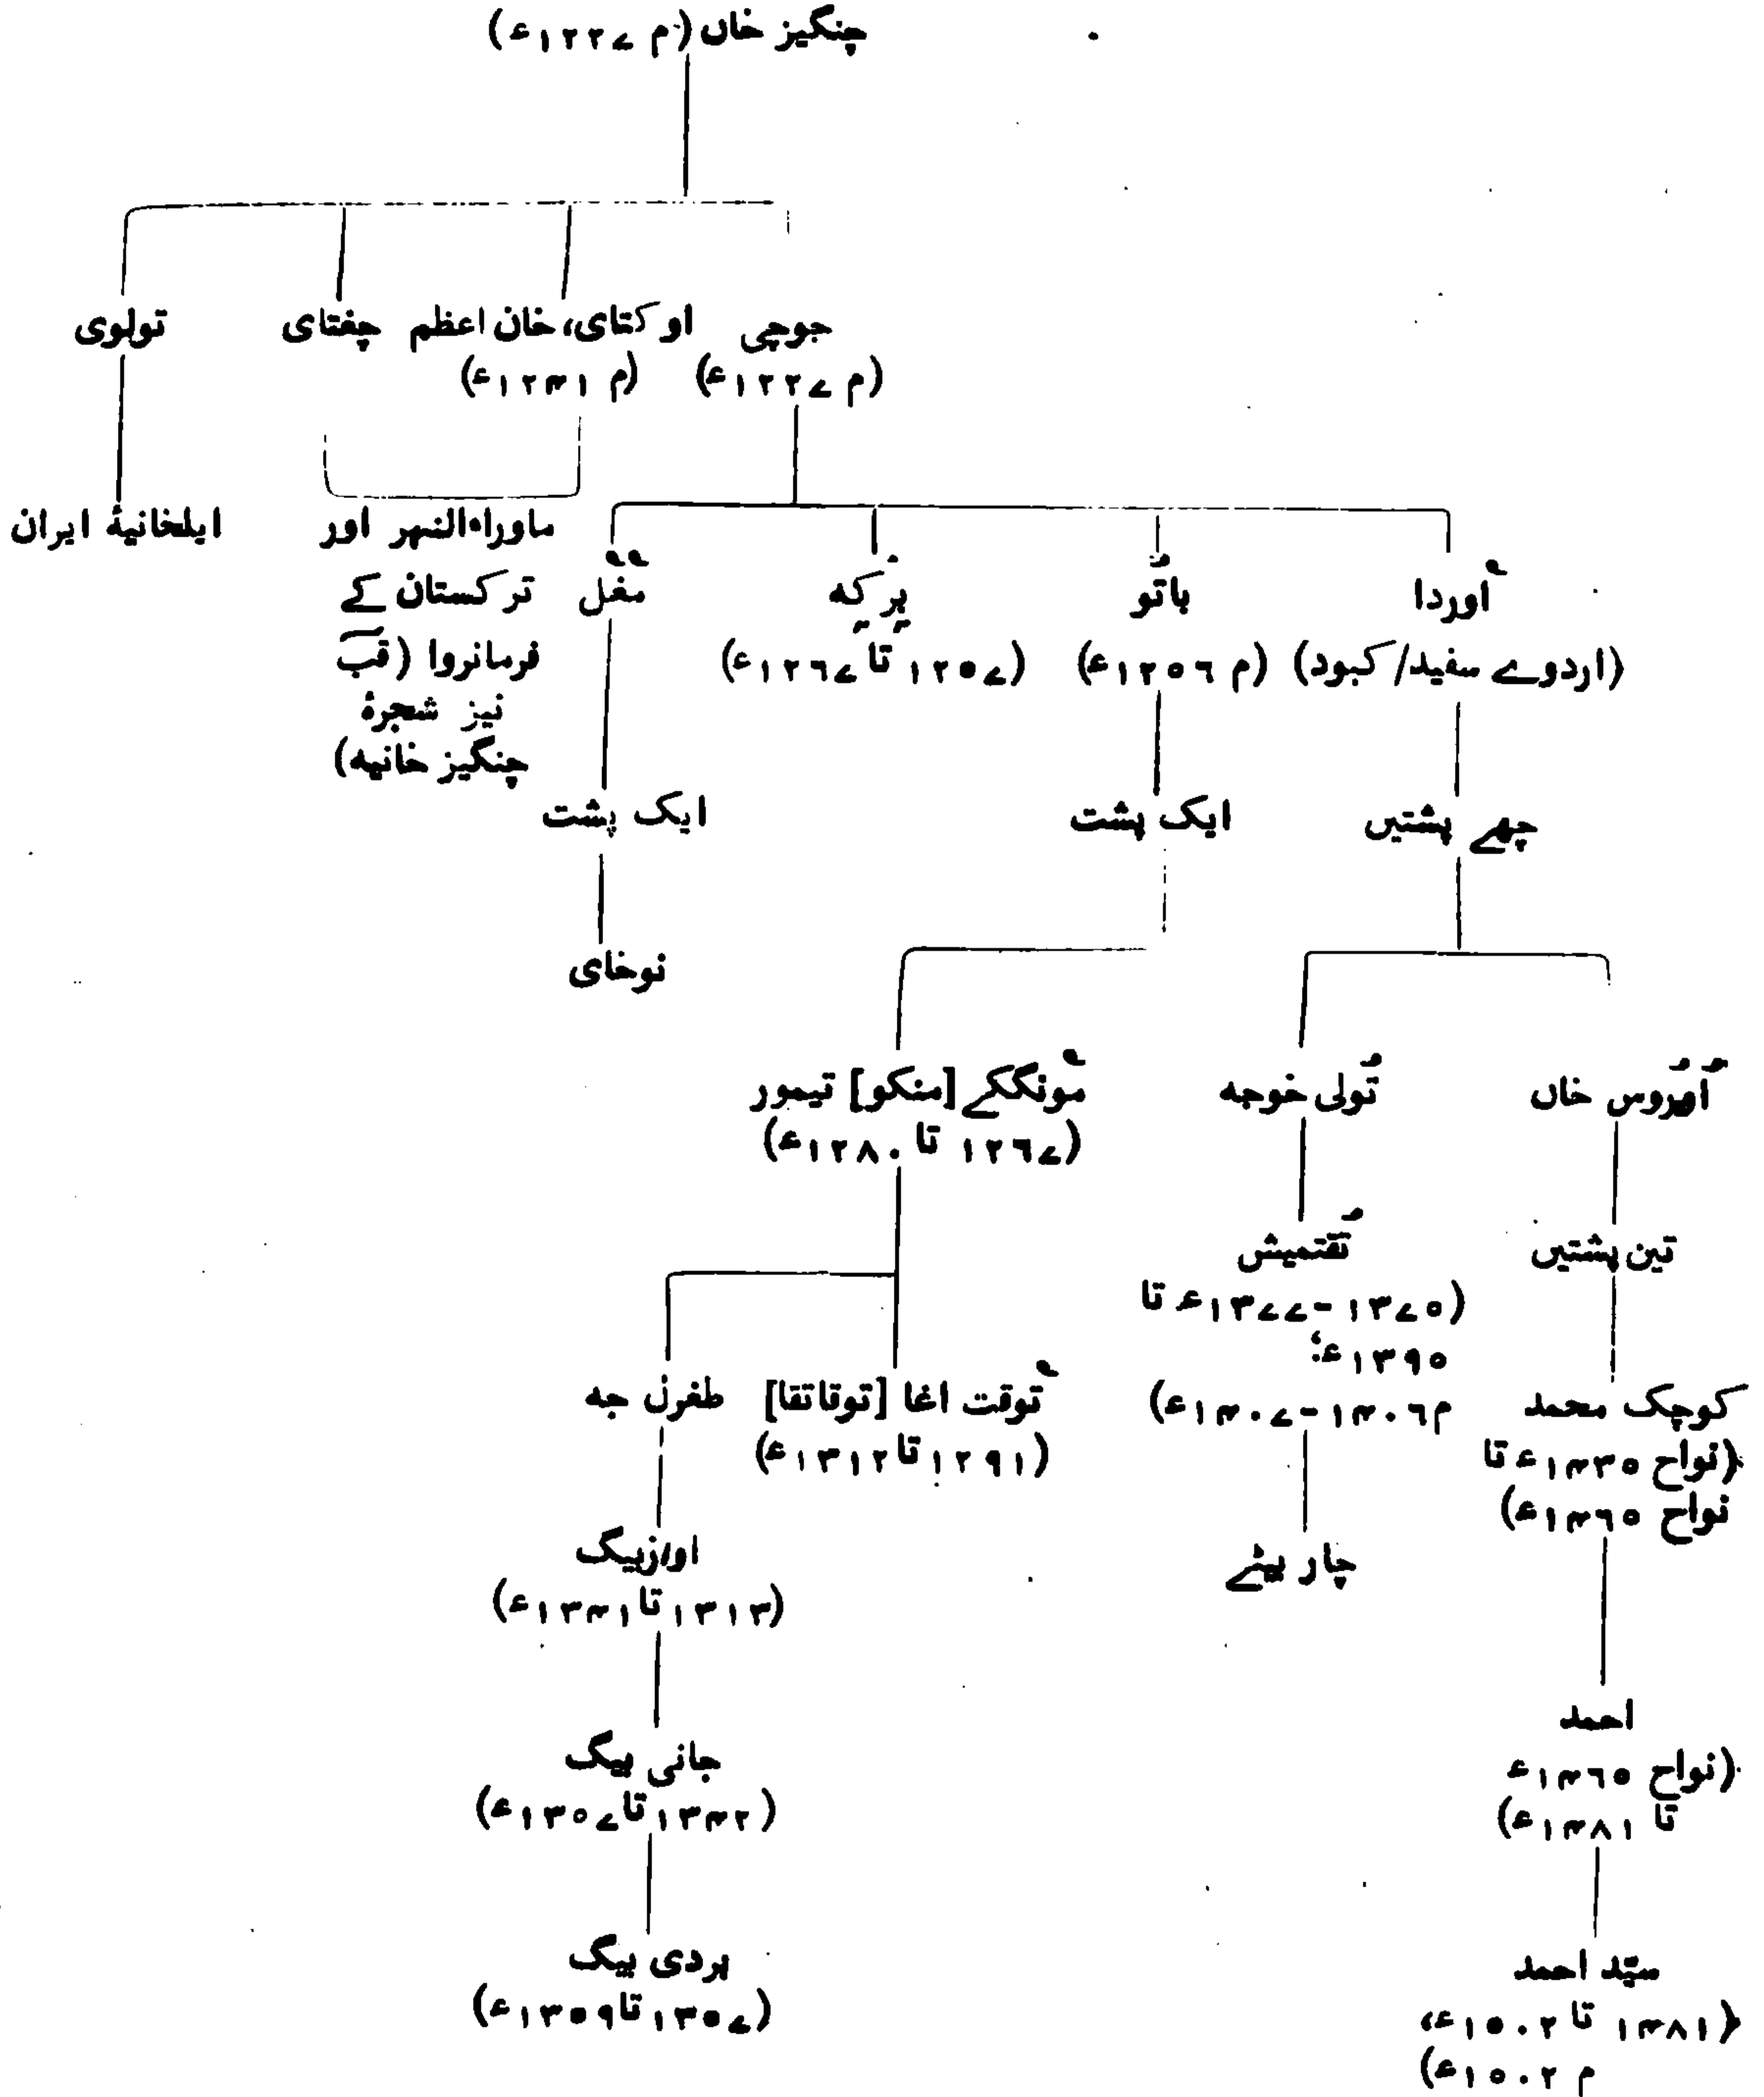 چنگیز خاں (م ۱۲۲۷ء)
جوچی
(م ۱۲۲۷ء)
اوکتای، خان اعظم
(م ۱۲۴۱ء)
چغتای
تولوی
ماوراءالنہر اور
ترکستان کے
فرمانروا (قبّ
نیز شجرۂ
چنگیز خانیہ)
ایلخانیۂ ایران
اوردا
(اردوے سفید/کبود)
باتُو
(م ۱۲۵۶ء)
برکہ
(۱۲۵۷ تا ۱۲۶۷ء)
مغل
چھے پشتیں
ایک پشت
ایک پشت
نوخای
اُورُوس خاں
تُولی خوجہ
مونگکے [منکو] تیمور
(۱۲۶۷ تا ۱۲۸۰ء)
تین پشتیں
تُقتمیش
(۱۳۷۵-۱۳۷۷ء تا
۱۳۹۵ء؛
م۱۴۰۶-۱۴۰۷ء)
توقت اغا [توقاتقا]
(۱۲۹۱ تا ۱۳۱۲ء)
طغرل جہ
کوچک محمد
(نواح ۱۴۳۵ء تا
نواح ۱۴۶۵ء)
چار بیٹے
اوزبیگ
(۱۳۱۳ تا ۱۳۴۱ء)
احمد
(نواح ۱۴۶۵ء
تا ۱۴۸۱ء)
جانی بیگ
(۱۳۴۲ تا ۱۳۵۷ء)
سیّد احمد
(۱۴۸۱ تا ۱۵۰۲ء،
م ۱۵۰۲ء)
بردی بیگ
(۱۳۵۷ تا ۱۳۵۹ء)